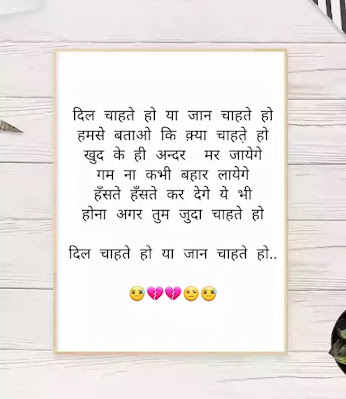 दिल चाहते हो या जान चाहते हो
हमसे बताओ कि क़्या चाहते़ हो
खुद के ही अन्दर मर जायेगे
गम ना कभी बहार लायेगे
हँसते हँसते कर देगे ये भी
होना अगर तुम जुदा चाहते हो
दिल चाहते हो या जान चाहते हो..
😓💔💔😒😓